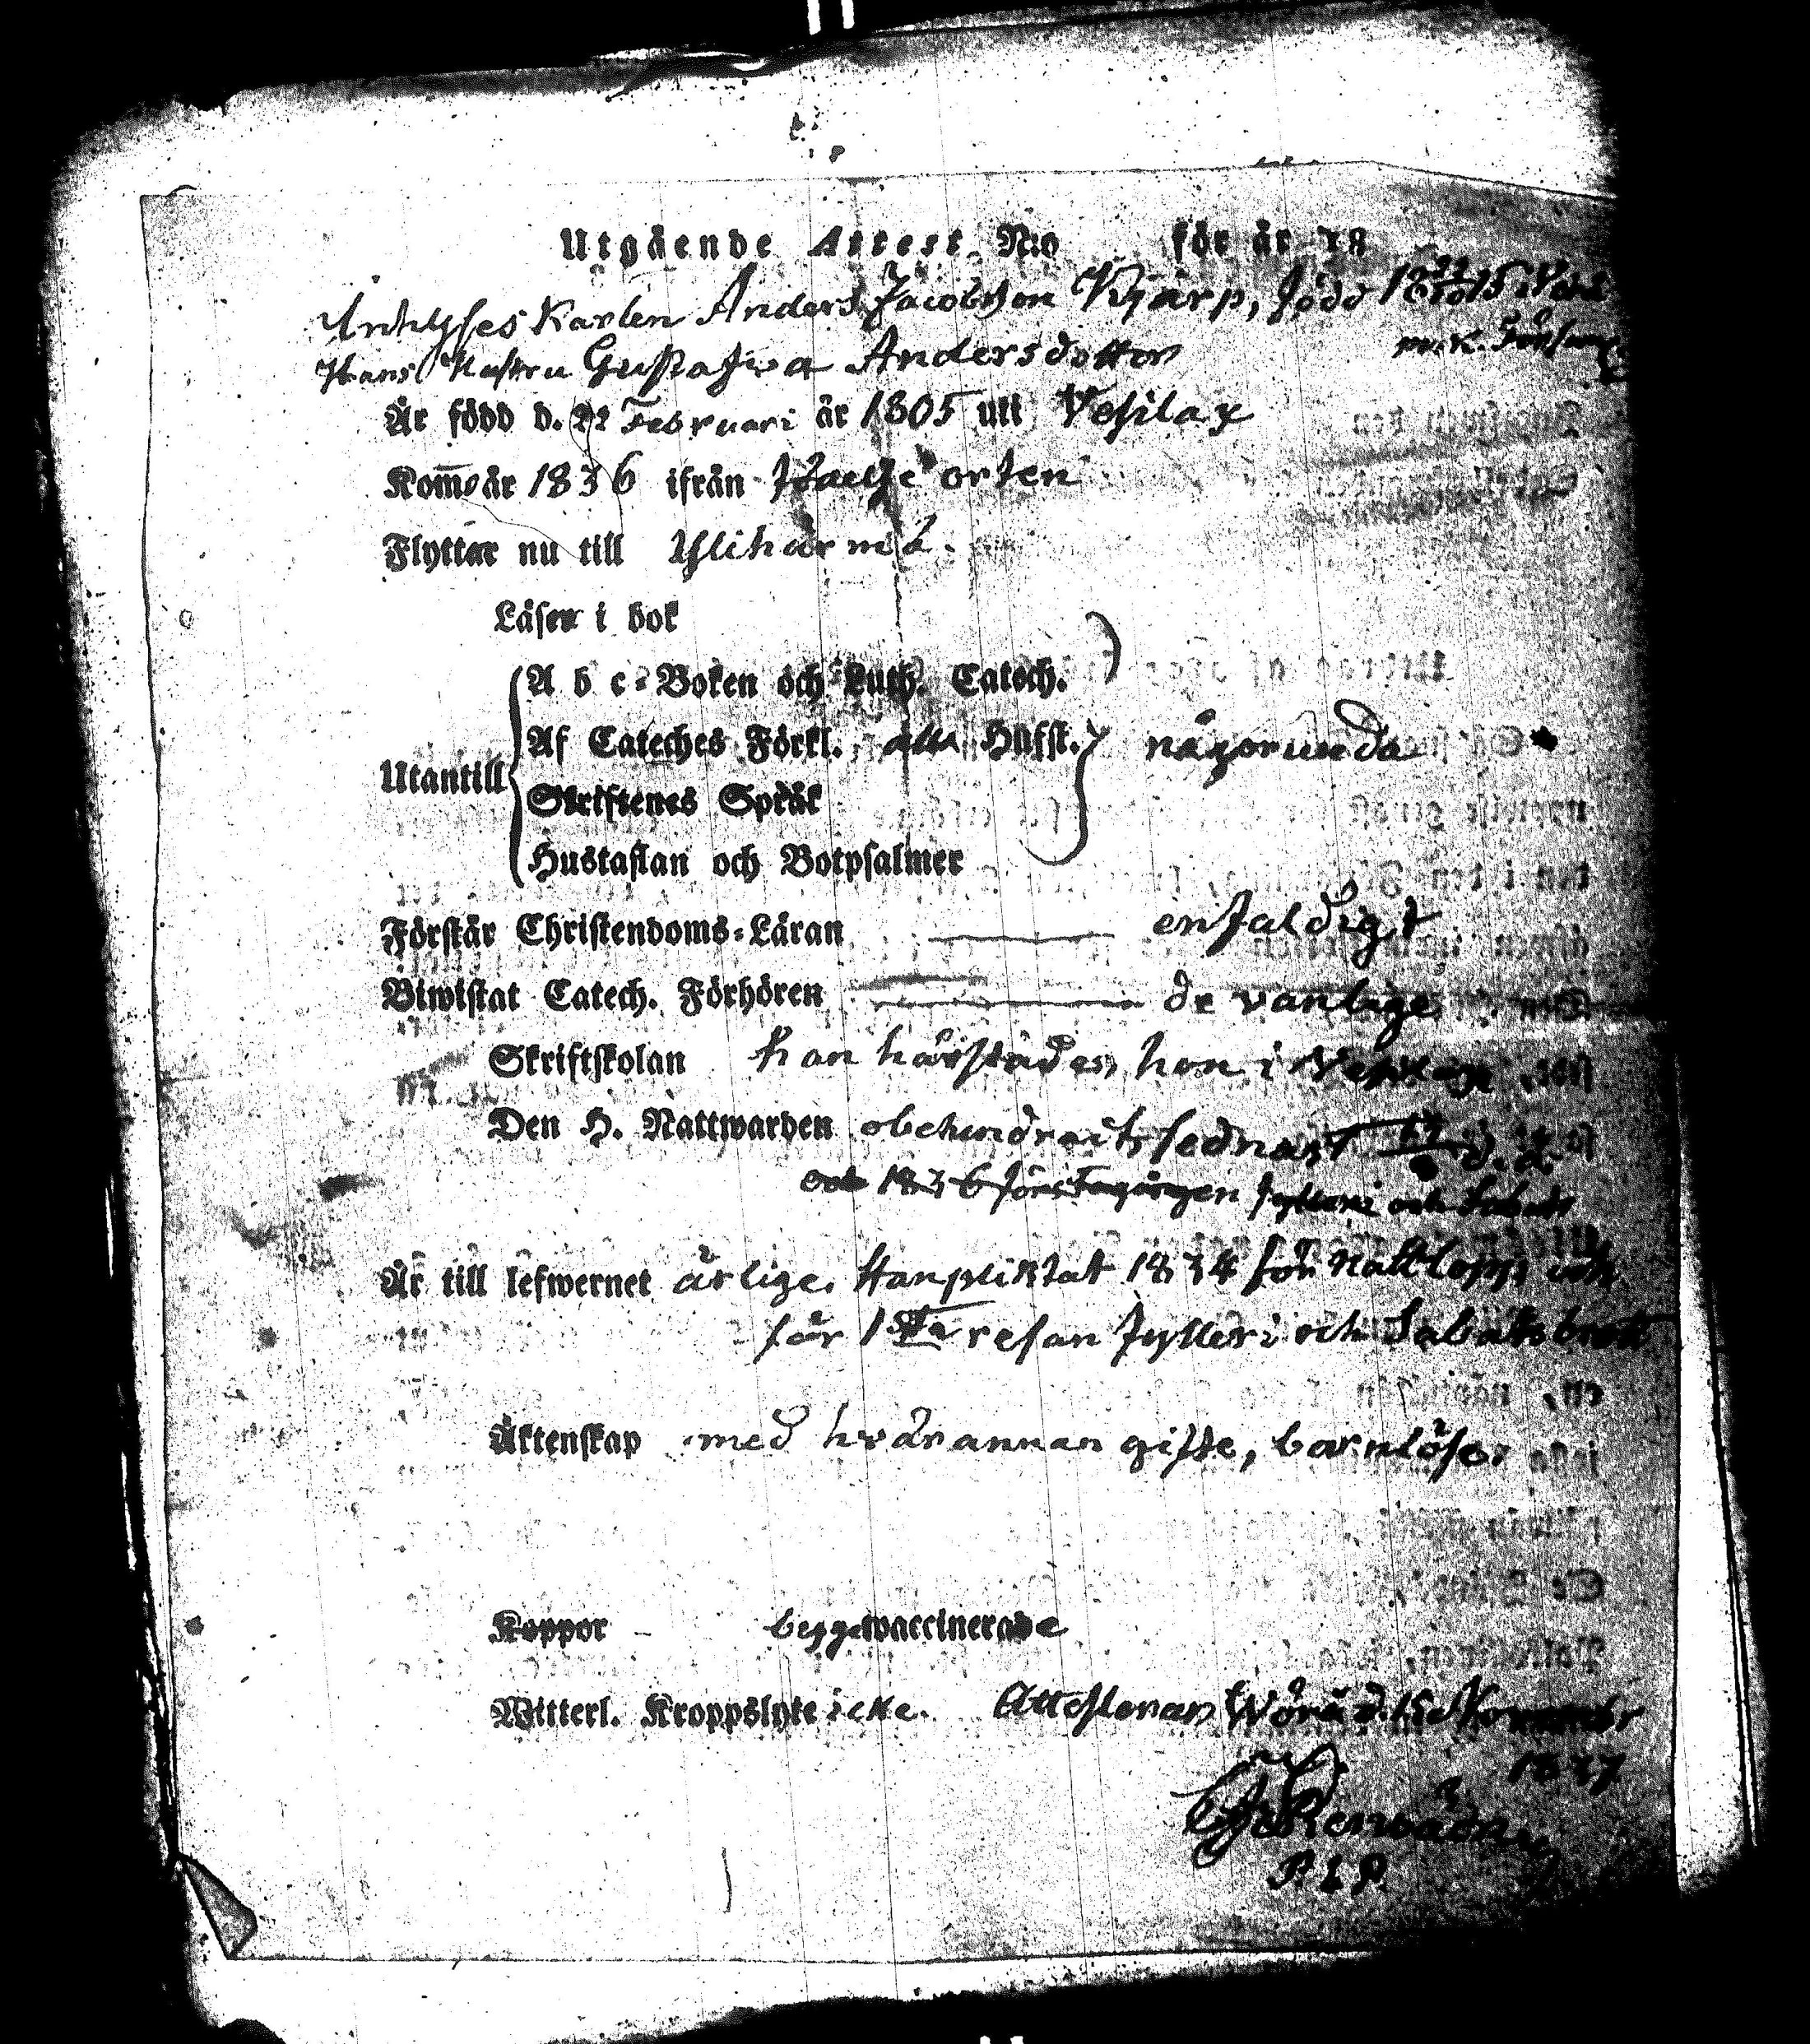 Utgående Attest N:o för år 18
Inhyses Karlen Anders Jacobsson Kjärp, född
Hans Hustru Gustafwa Andersdotter
Är född d. 22 Februari år 1805 uti Vesilax
Kom̄o år 1836 ifrån orten
Flyttar nu till Ylihärmä.
Läser i bok
A b c-Boken och Luth. Catech.
Utantill Af Cateches Förkl. alla Hufst. någorlunda
Skriftenes Språk
Hustaflan och Botpsalmer
Förstår Christendoms-Läran enfaldigt
Biwistat Catech. Förhören de vanlige
Skriftskolan han härstädes, hon i Vesilax
Den H. Nattwarden obehindradt, sednast
1836 fylleri och Sabats
Är till lefwernet ärlige. Han pliktat 1834 för Nattlopp och
för 1sta resan fylleri och Sabatsbrott
Äktenskap med hvarannan gifte, barnlöse.
Koppor begge waccinerade
Witterl. Kroppslyte icke. Attesterar Wörå d. November
1837
P. L. P.